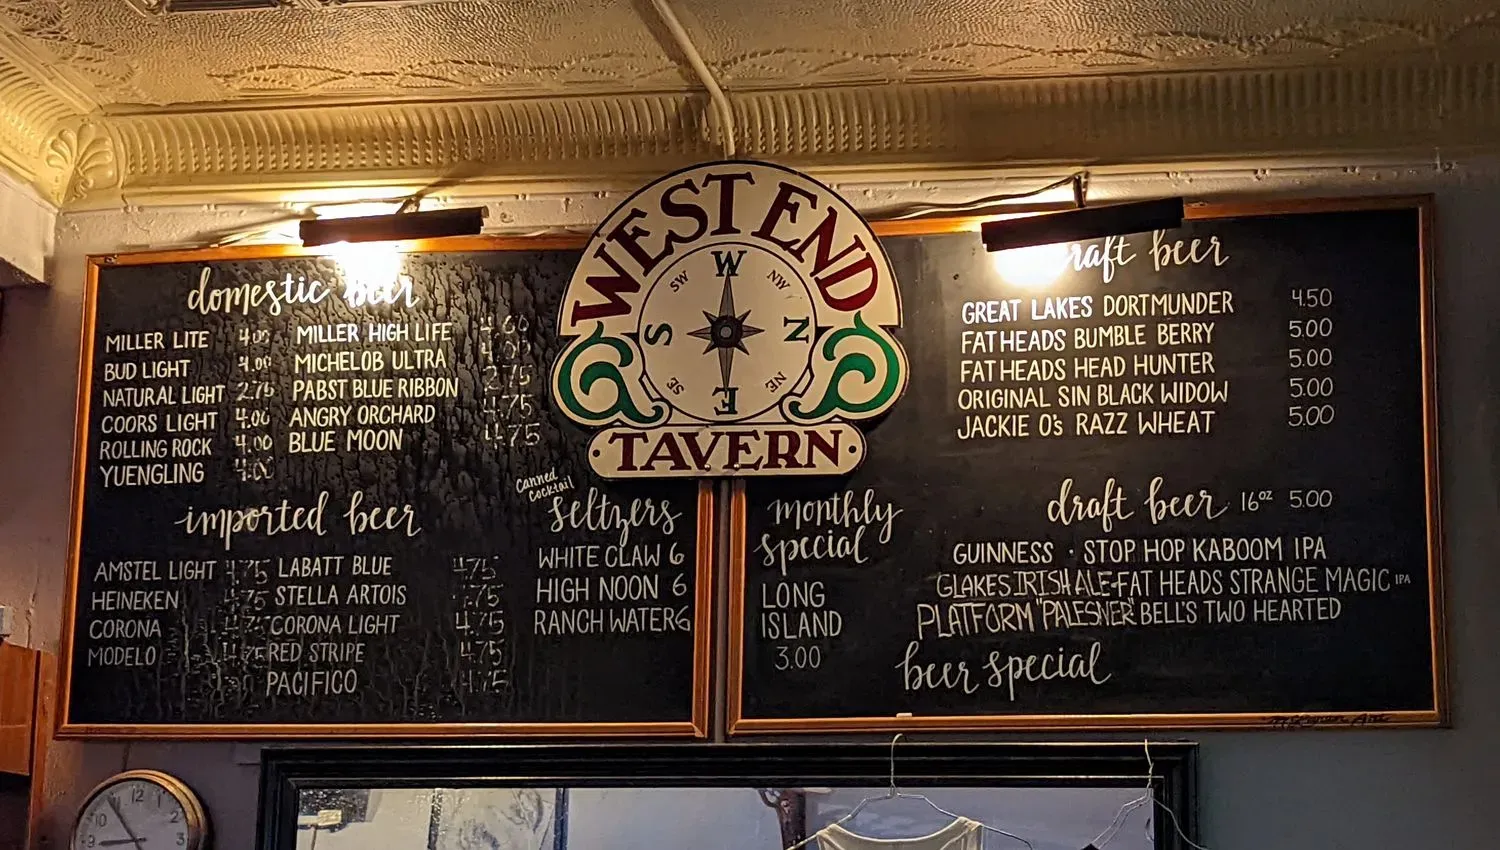 WEST END
W
NW
N
NE
E
SE
S
SW
TAVERN
domestic beer
MILLER LITE 4.00 MILLER HIGH LIFE
BUD LIGHT 4.00 MICHELOB ULTRA 4.00
NATURAL LIGHT 2.75 PABST BLUE RIBBON 2.75
COORS LIGHT 4.00 ANGRY ORCHARD 4.75
ROLLING ROCK 4.00 BLUE MOON 4.75
YUENGLING 4.00
imported beer
AMSTEL LIGHT 4.75 LABATT BLUE 4.75
HEINEKEN 4.75 STELLA ARTOIS 4.75
CORONA 4.75 CORONA LIGHT 4.75
MODELO 4.75 RED STRIPE 4.75
PACIFICO 4.75
Canned
Cocktail
Seltzers
WHITE CLAW 6
HIGH NOON 6
RANCH WATER 6
monthly
special
LONG
ISLAND
3.00
draft beer
GREAT LAKES DORTMUNDER 4.50
FAT HEADS BUMBLE BERRY 5.00
FAT HEADS HEAD HUNTER 5.00
ORIGINAL SIN BLACK WIDOW 5.00
JACKIE O's RAZZ WHEAT 5.00
draft beer 16oz 5.00
GUINNESS · STOP HOP KABOOM IPA
GLAKES IRISH ALE-FAT HEADS STRANGE MAGIC IPA
PLATFORM "PALESNER" BELL'S TWO HEARTED
beer special
12
3
9